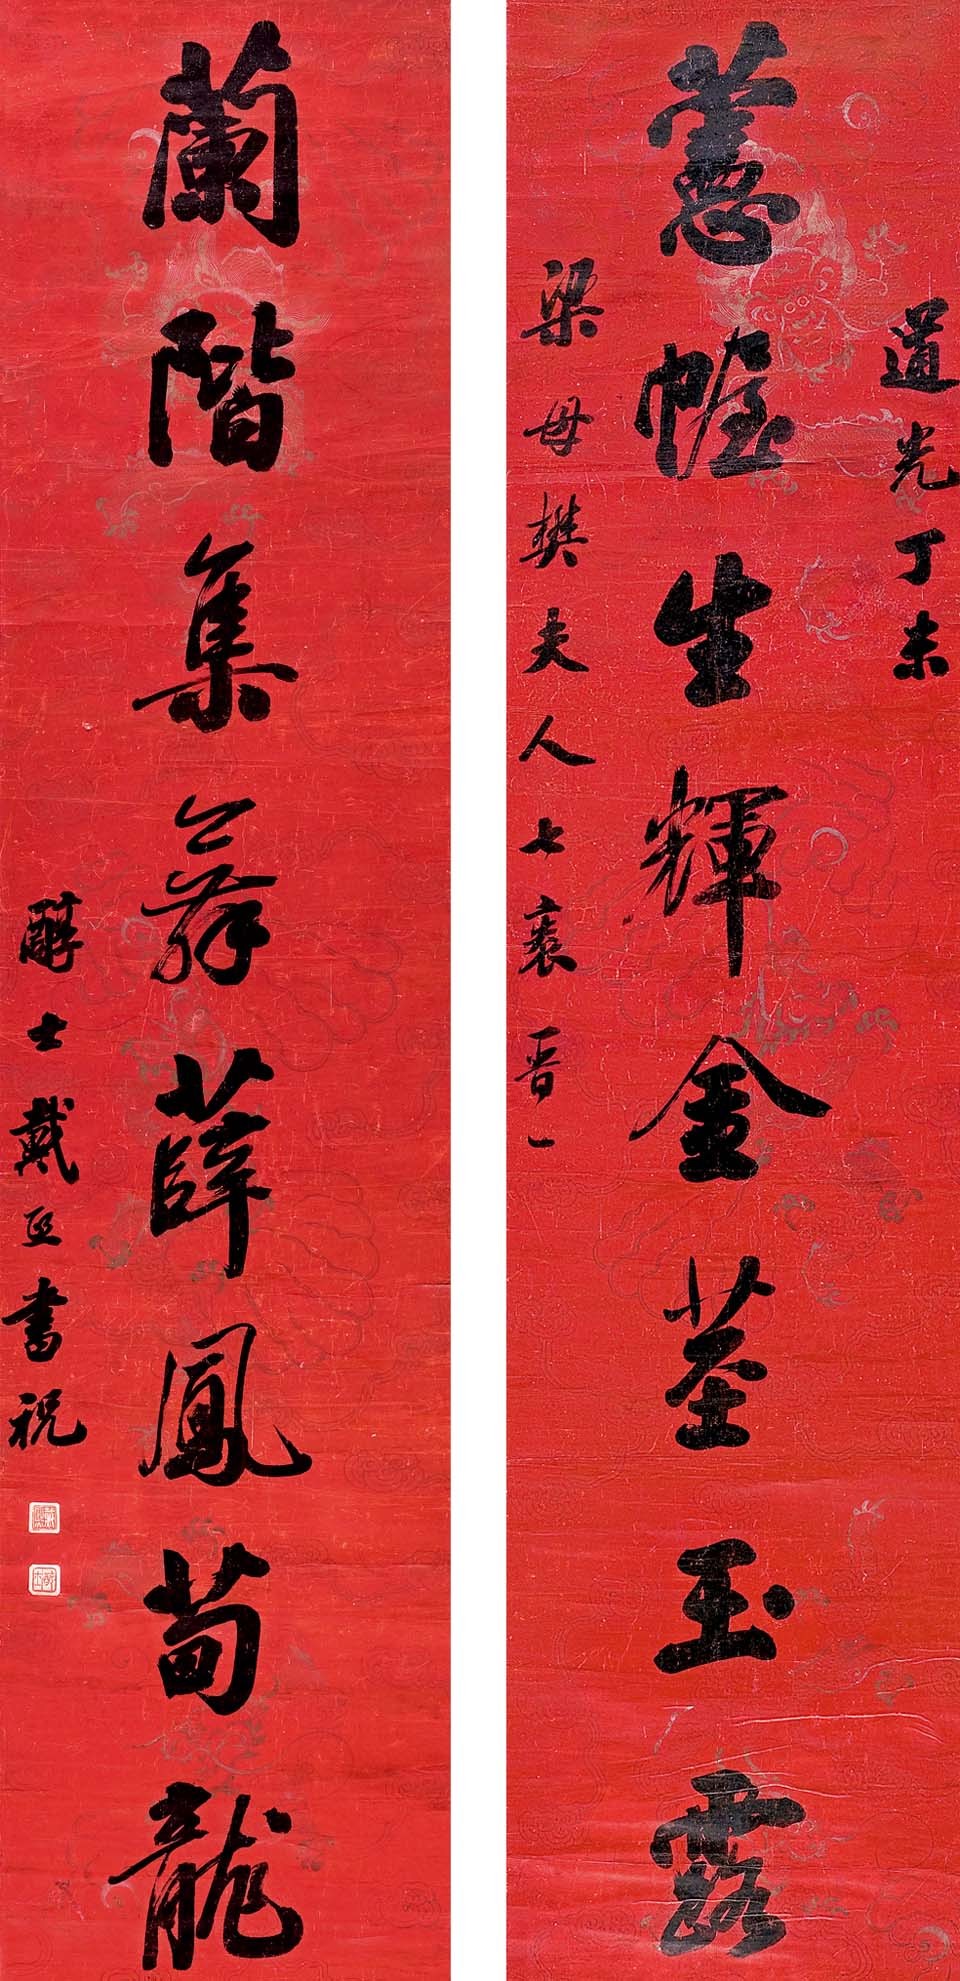 道光丁未
蕙幄生輝金荃玉露
梁母樊夫人七袠晉一
蘭階集舞薛鳳荀龍
醇士戴熙書祝